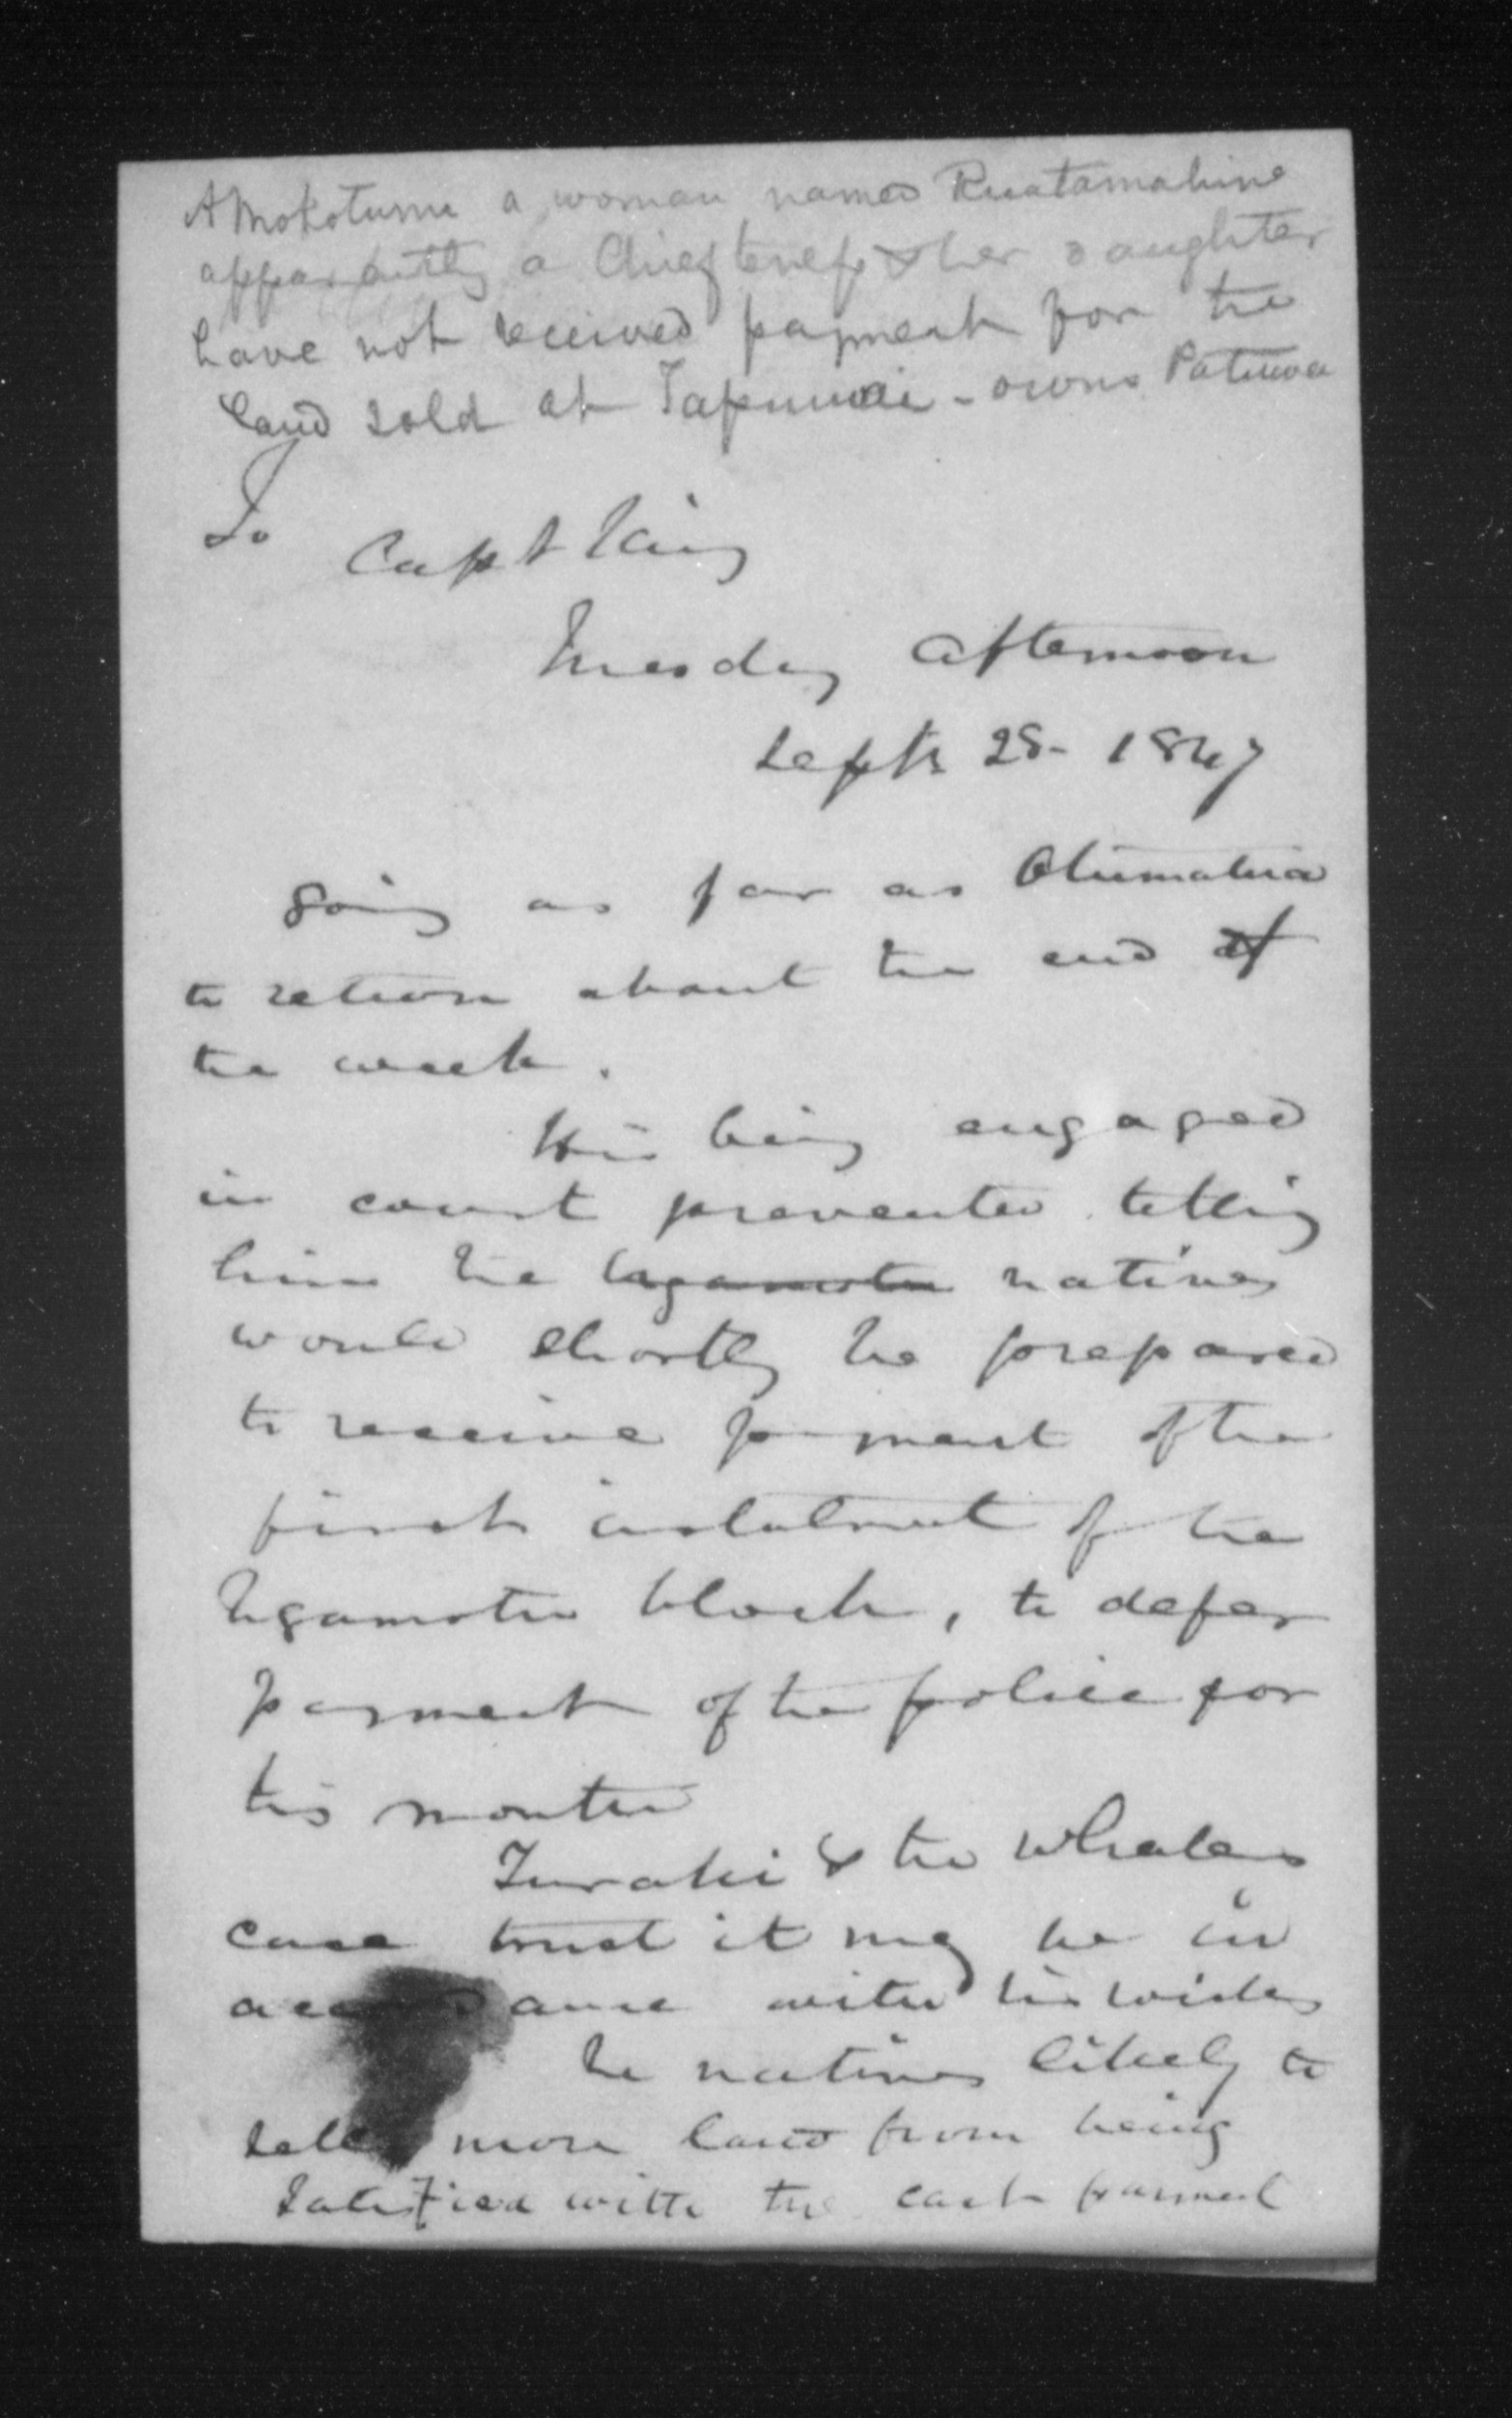 At Mokotunu a woman named Ruatamahine
apparently a Chieftenefs & her daughter
have not received payment for the
land sold at Tapuwae - owns Patuwa
To Capt King
Tuesday afternoon
Septr 28 - 1847
going as far as Otumatua
to return about the end of
the week.
His being engaged
in court prevented telling
him the Ngamotu natives
would shortly be prepared
to receive payment of the
first instalment of the
Ngamotu block, to defer
payment of the police for
this month
Turaki & the Whalers
case trust it may be in
accordance with his wishes
The natives likely to
sell more land from being
satisfied with the cash payment